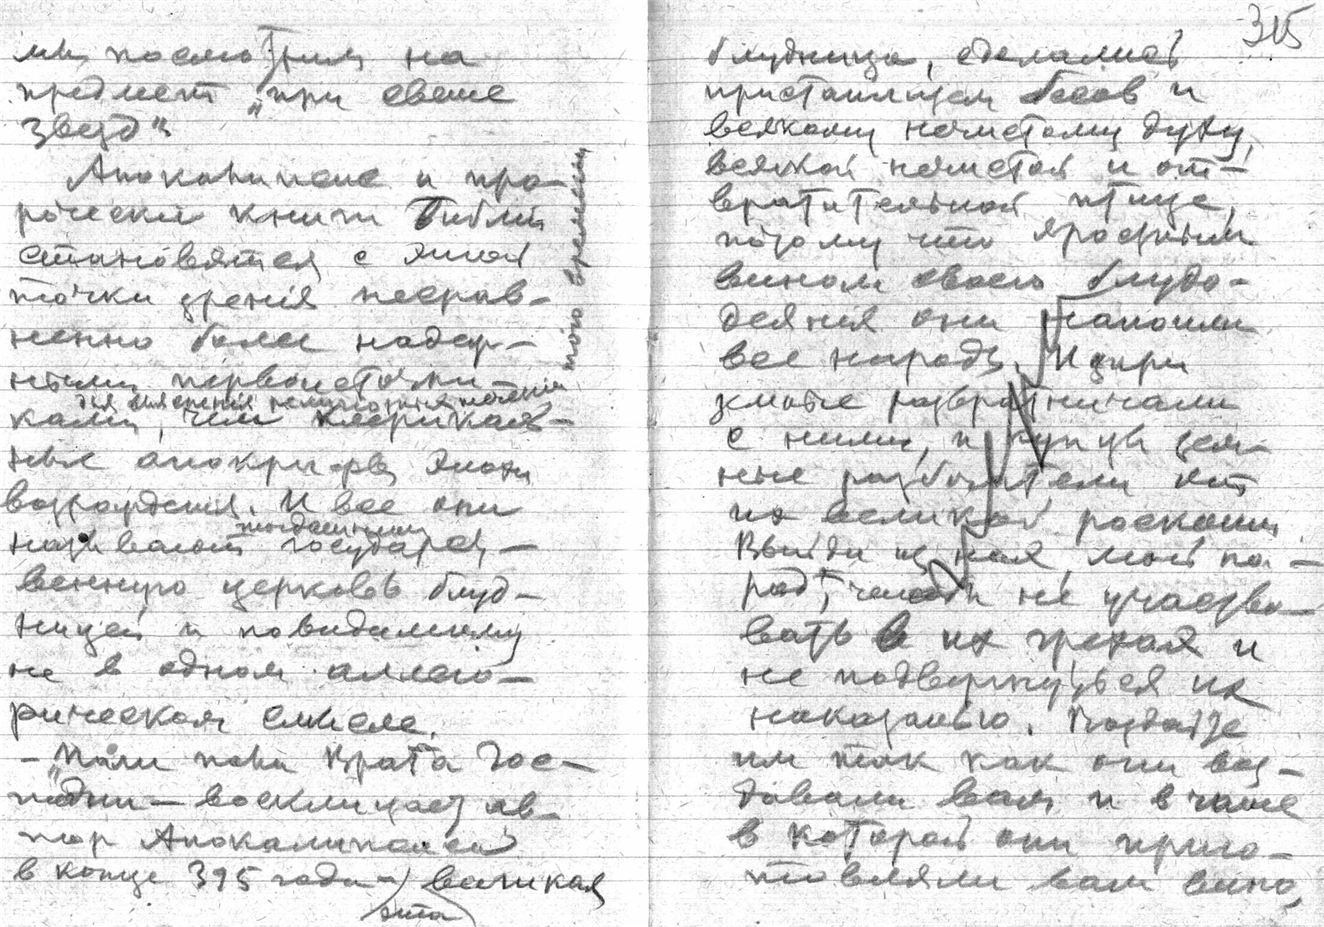 мы посмотрим на
предмет „при свете
звезд“.
Апокалипсис и про-
рочески книги Библии
становятся с этой
точки зрения несрав-
ненно более надеж-
ными первоисточни-
для выяснения
того времени
ками, чем клерикаль-
ные апокрифы эпохи
возрождения. И все они
тогдашнюю
называют государст-
венную церковь блуд-
ницей и повидимому
не в одном аллего-
рическом смысле.
— „Пали, пали Врата Гос-
подни — восклицает ав-
тор Апокалипсиса
в конце 395 года — великая
эта
315
блудница, сделались
пристанищем бесов и
всякому нечистому духу,
всякой нечистой и от-
вратительной птице,
потому что яростным
вином своего блудо-
деяния они напоили
все народы. И цари
земные развратничали
с ними, и купцы зем-
ные разбогатели от
их великой роскоши
Выйди из нея, мой на-
род, чтоб не участво-
вать в их грехах и
не подвергнуться их
наказанью. Воздайте
им так как они воз-
давали вам и в чаше
в которой они приго-
товляли вам вино,